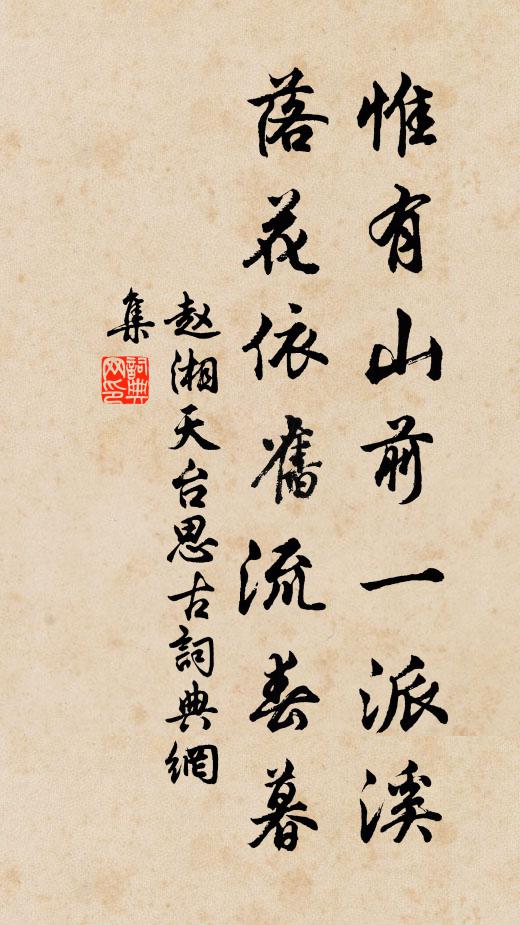 惟有山前一派溪
落花依舊流春暮
赵湘天台思古詞典網
集
詞典網印